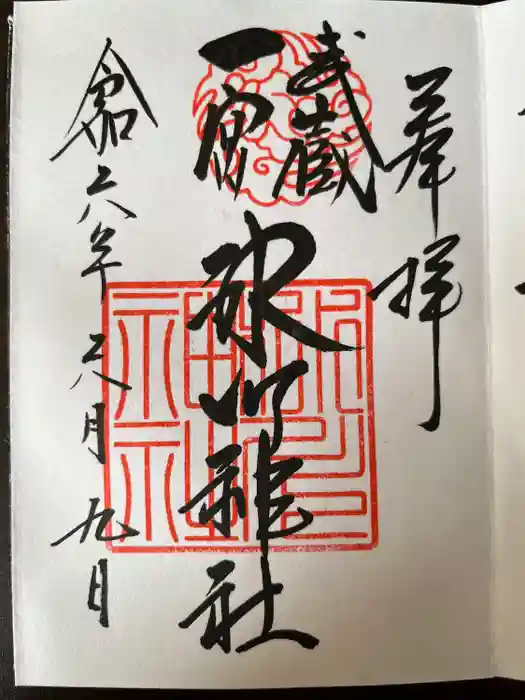 奉拝
武蔵
一宮
氷川神社
令和六年六月九日